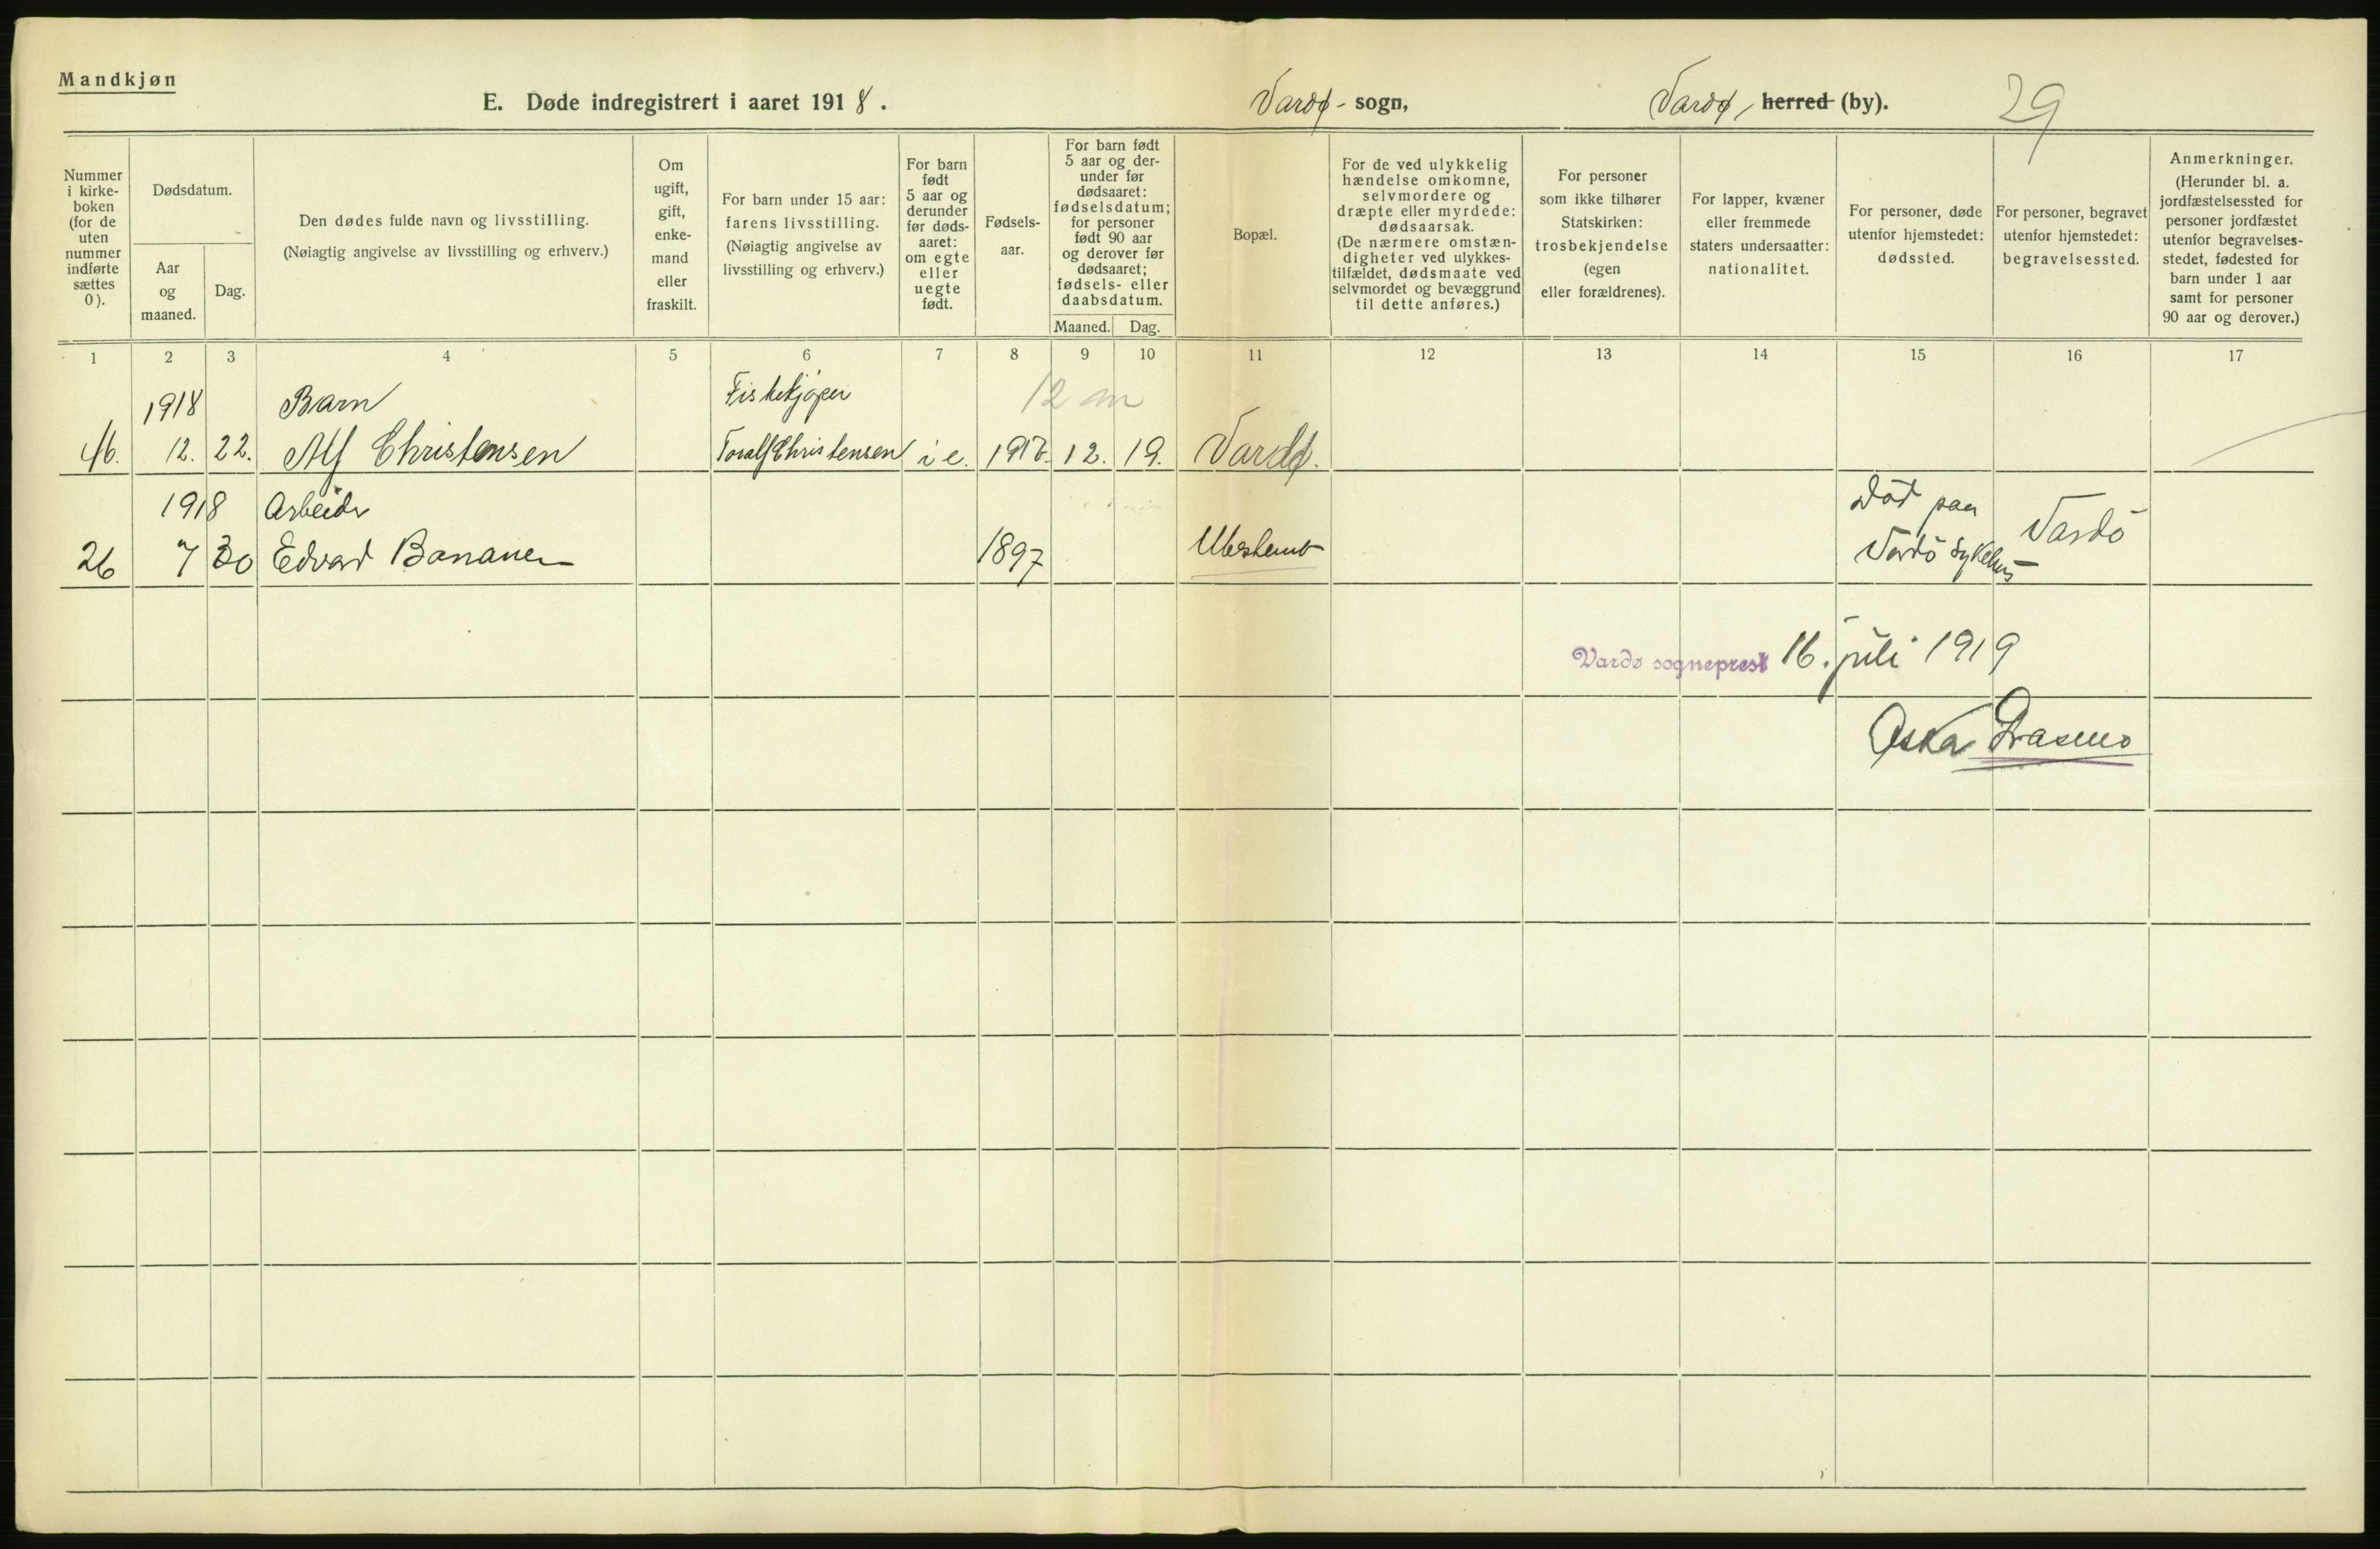 Mandkjøn
E. Døde indregistrert i aaret 1918.
Vardø - sogn,
Vardø, herred (by).
29
Nummer
i kirke-
boken
(for de
uten
nummer
indførte
sættes
0).
Dødsdatum.
Aar
og
maaned.
Dag.
Den dødes fulde navn og livsstilling.
(Nøiagtig angivelse av livsstilling og erhverv.)
Om
ugift,
gift,
enke-
mand
eller
fraskilt.
For barn under 15 aar:
farens livsstilling.
(Nøiagtig angivelse av
livsstilling og erhverv.)
For barn
født
5 aar og
derunder
før døds-
aaret:
om egte
eller
uegte
født.
Fødsels-
aar.
For barn født
5 aar og der-
under før
dødsaaret:
fødselsdatum;
for personer
født 90 aar
og derover før
dødsaaret;
fødsels- eller
daabsdatum.
Maaned.
Dag.
Bopæl.
For de ved ulykkelig
hændelse omkomne,
selvmordere og
dræpte eller myrdede:
dødsaarsak.
(De nærmere omstæn-
digheter ved ulykkes-
tilfældet, dødsmaate ved
selvmordet og bevæggrund
til dette anføres.)
For personer
som ikke tilhører
Statskirken:
trosbekjendelse
(egen
eller forældrenes).
For lapper, kvæner
eller fremmede
staters undersaatter:
nationalitet.
For personer, døde
utenfor hjemstedet:
dødssted.
For personer, begravet
utenfor hjemstedet:
begravelsessted.
Anmerkninger.
(Herunder bl. a.
jordfæstelsessted for
personer jordfæstet
utenfor begravelses-
stedet, fødested for
barn under 1 aar
samt for personer
90 aar og derover.)
1 2 3 4 5 6 7 8 9 10 11 12 13 14 15 16 17
1918 Barn Fiskekjøper 12 m
46. 12. 22. Alf Christensen Toralf Christensen i e. 1917. 12. 19. Vardø.
1918 Arbeider Död paa
26 7 30 Edvard Bananen 1897 Ubestemt Vardö Sykehus Vardö
Vardø sogneprest 16. juli 1919